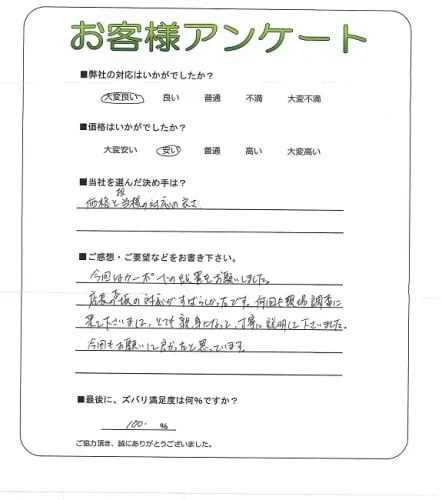 お客様アンケート
■弊社の対応はいかがでしたか？
大変良い 良い 普通 不満 大変不満
■価格はいかがでしたか？
大変安い 安い 普通 高い 大変高い
■当社を選んだ決め手は？
価格と担当様の対応の良さ
■ご感想・ご要望などをお書き下さい。
今回はカーポートの設置をお願いしました。
店長の対応がすばらしかったです。何回も現場調査に
来て下さいまして、とても親身になって、丁寧に説明して下さいました。
今回もお願いして良かったと思っています。
■最後に、ズバリ満足度は何%ですか？
100. %
ご協力頂き、誠にありがとうございました。